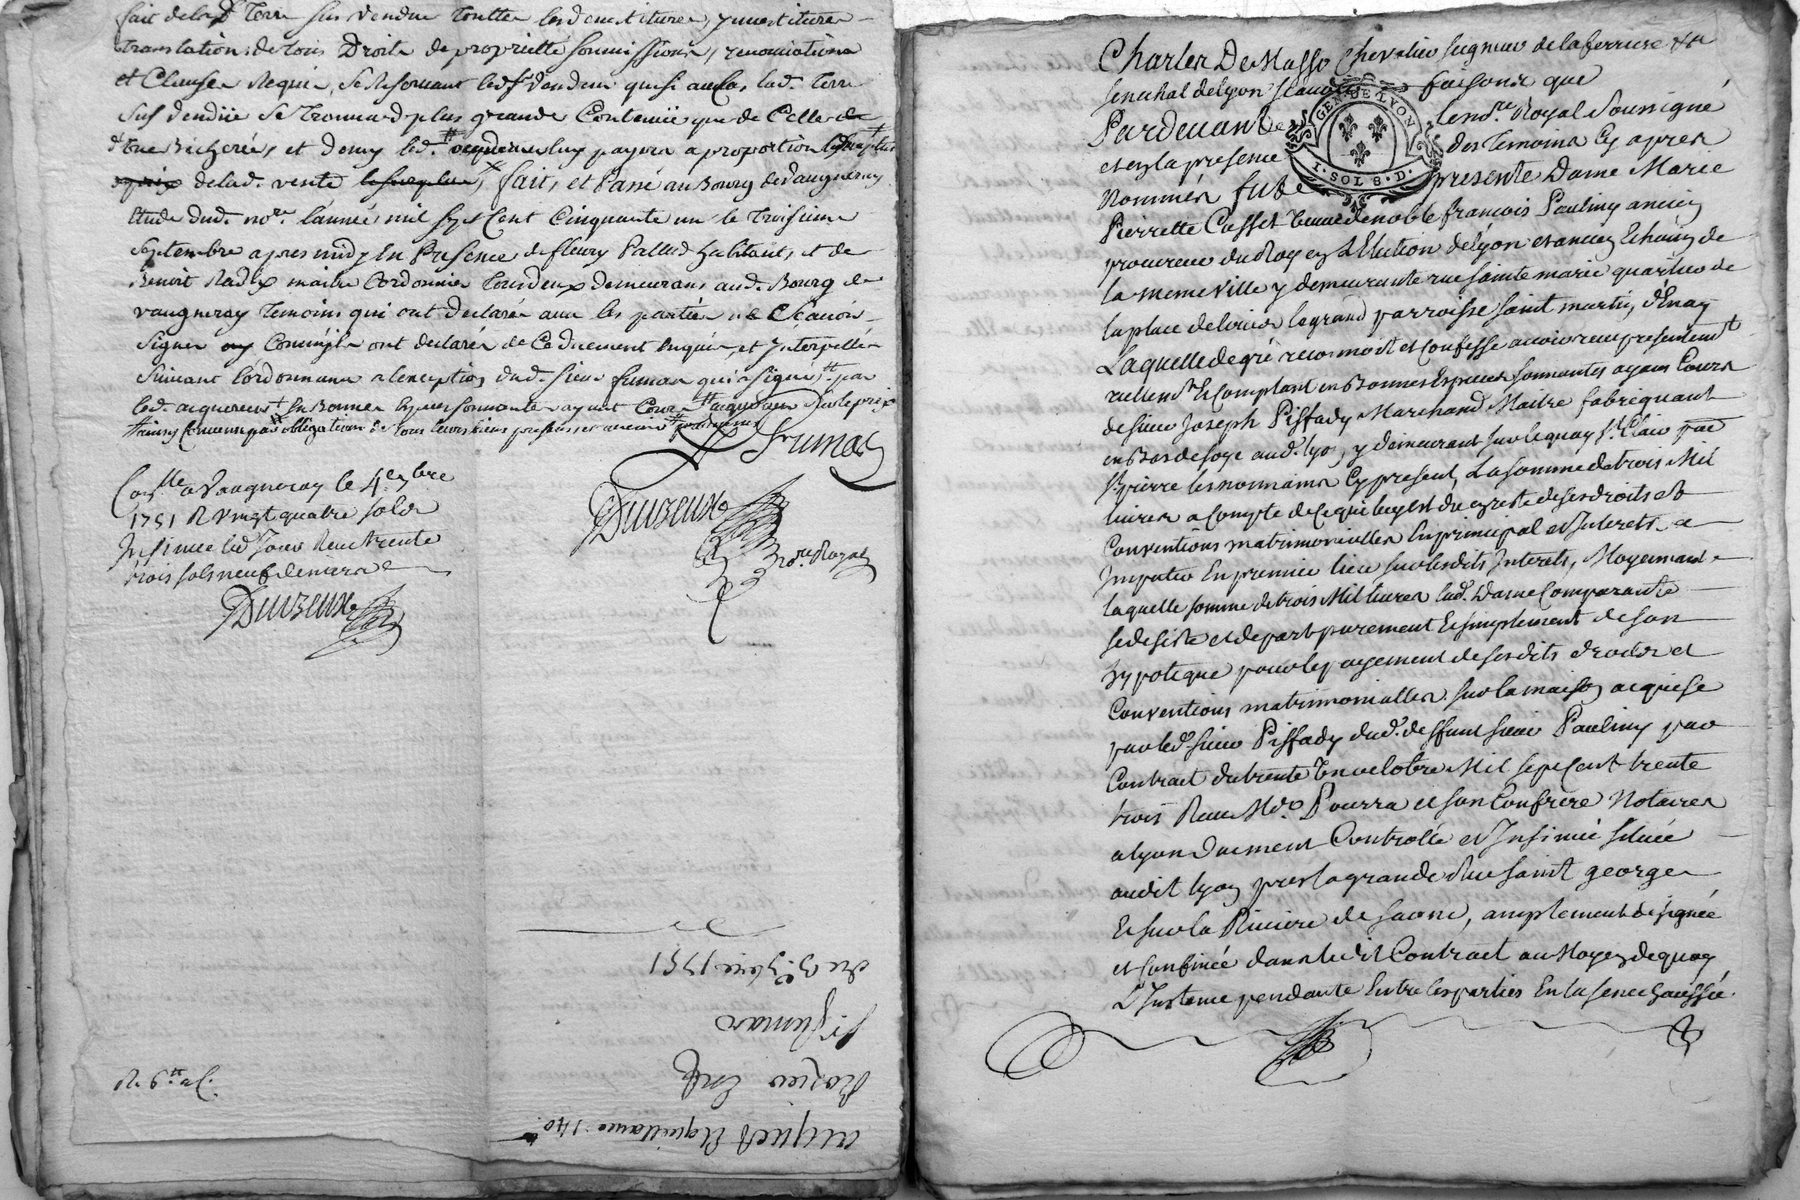 fait de lad. Terre sus vendue touttes les devestitures, ynvestitures
translations de tous Droits de proprietté soumissions, renonciations
et Clauses Requis, se Reservant led. sr Vendeur que si au cas lad. Terre
sus vendüe se trouvera plus grande Contenüe que de Celle de
d'une Bicherée, et demy led. acquereur luy payera a proportion
de lad. vente le surplus, fait, et Passé au Bourg de Vaugneray
Etude dud. nore. l'année mil sept Cent Cinquante un le Troisieme
septembre apres midy En Presence de fleury Pallud habitant, et de
Benoit Radix maitre Cordonnier tous deux demeurans aud. Bourg de
vaugneray Temoins qui ont declarés avec les parties ne sçavoir
signer ont declarés de Ce duement Enquis, et ynterpellés
suivant l'ordonnance a l'exception dud. sieur fumas qui a signé par
led. acquereur En Bonnes Especes sonnantes ayant Cours
fumas
Duvzeux
nore. Royal
Conlle a Vaugneray le 4e 7bre
1751 R vingt quatre sols
Insinué led. Jour Reçu trente
trois sols neuf deniers
Duvzeux
acquest Et quittance 140
Rozier
sr fumas
du 3e 7bre 1751
R. 6
Charles De Masso Chevalier seigneur de la ferriere &a
senechal de Lyon sçavoir faisons que
Pardevant le nore. Royal soussigné
et en la presence des Temoins Cy apres
Nommés fut presente Dame Marie
GEN. DE LYON
I. SOL 8. D.
Pierrette Casset veuve de noble françois Pauliny ancien
procureur du Roy en L'Election de Lyon et ancien Echevin de
la meme ville y demeurante rue sainte marie quartier de
la place de Louis le grand parroisse saint martin d'Enay
Laquelle de gré reconnoit et Confesse avoir reçu presentemt
reellemt. et Comptant en Bonnes Especes sonnantes ayans Cours
de sieur Joseph Pissady Marchand Maitre fabriquant
en Bas de soye aud. Lyon, y demeurant sur le quay st. Clair psse
st. pierre les nonnains Cy present, La somme de trois Mil
livres a Compte de Ce qui luy est du en reste de ses droits et
Conventions matrimonielles En principal et Interets a
Imputer En premier lieu sur lesdits Interets, Moyennant
laquelle somme de trois Mil livres lad. Dame Comparante
se desiste et depart purement Et simplement de son
hypoteque pour le payement de ses dits droits et
Conventions matrimonialles sur la maison acquise
par led. sieur Pissady dud. deffunt sieur Pauliny par
Contract du trente un octobre Mil sept Cent trente
trois Reçu Me. Pourra et son Confrere Notaires
a Lyon Duement Controllé et Insinué située
audit Lyon pres la grande Rue saint george
Et sur la Riviere de saone, amplement designée
et Confinée dans ledit Contract au Moyen de quoy
L'Instance pendante Entre les parties En la senechaussée